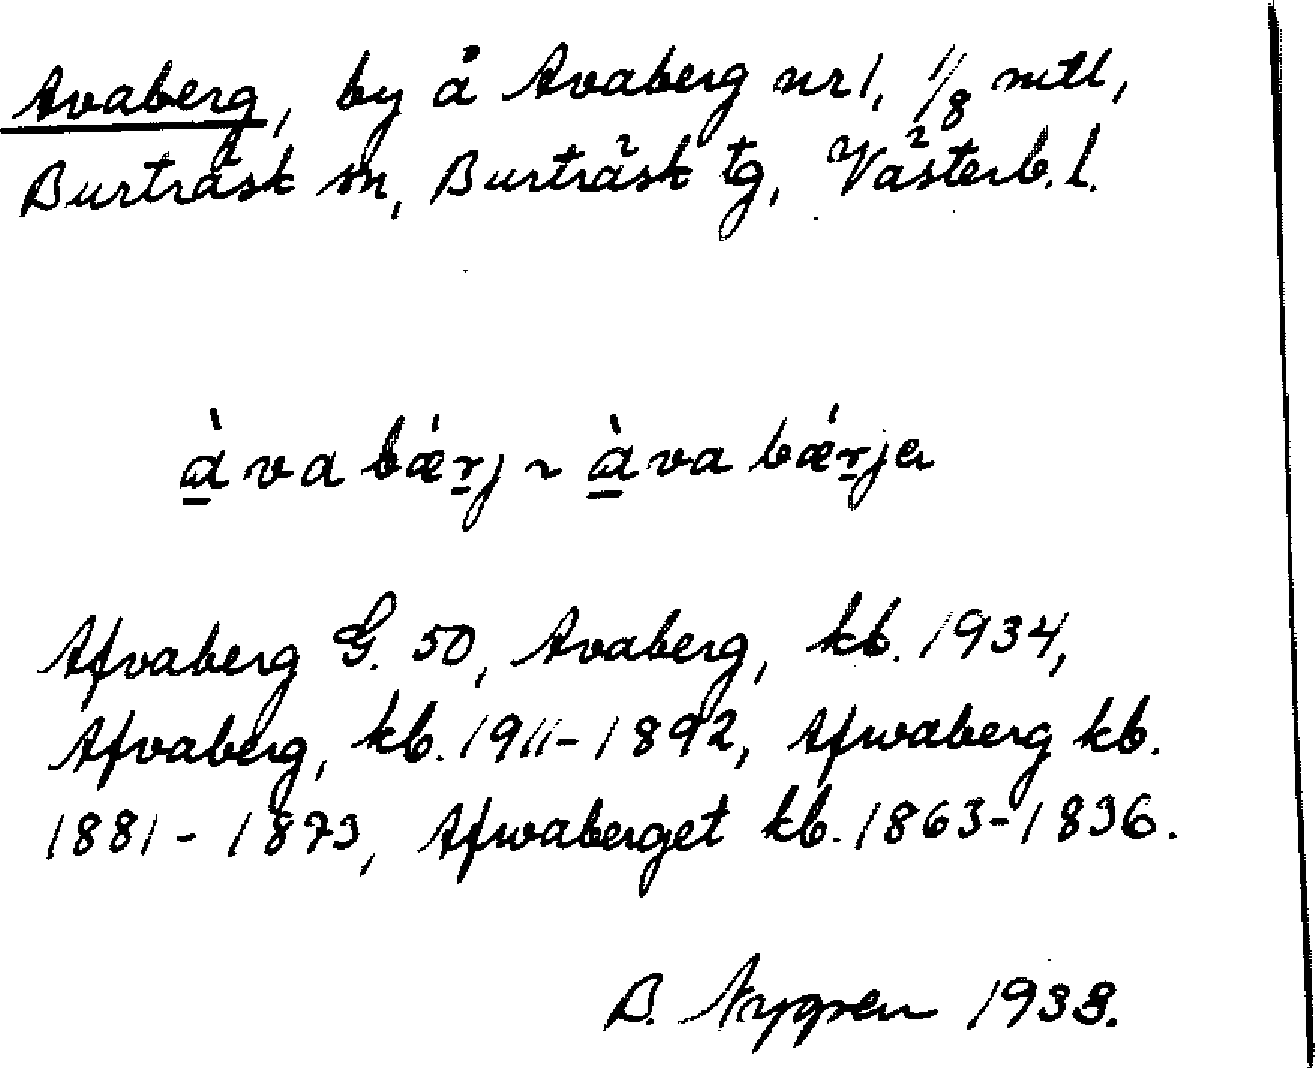 Avaberg, by å Avaberg nr 1, 1/8 mtl,
Burträsk sn, Burträsk tg, Västerb. l.
à̱va bǽṟj ~ à̱va bǽṟje
Afvaberg G. 50, Avaberg, kb. 1934,
Afvaberg, kb. 1911-1892, Afwaberg kb.
1881-1873, Afwaberget kb. 1863-1836.
B. Nygren 1938.